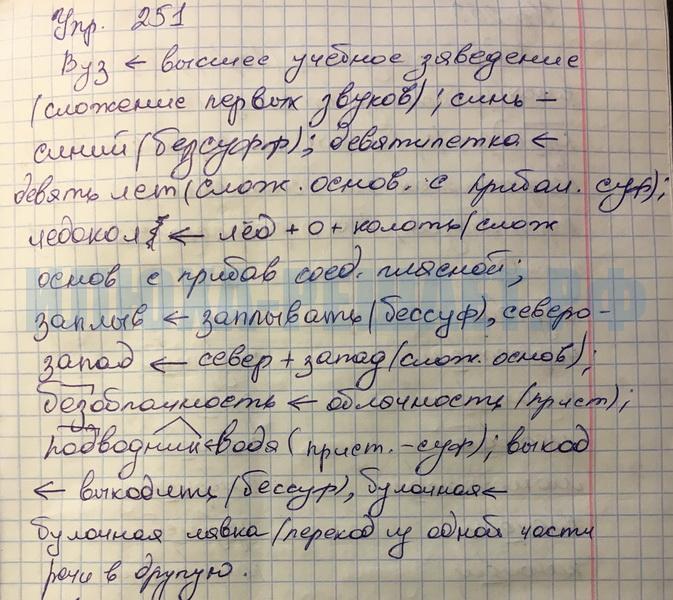 Упр. 251
Вуз ← высшее учебное заведение
(сложение первых звуков); синь –
синий (безсуфф); девятилетка ←
девять лет (слож. основ. с прибав. суф);
ледокол ← лёд + о + колоть (слож
основ с прибав соед. гласной;
заплыв ← заплывать (бессуф), северо-
запад ← север + запад (слож. основ);
безоблачность ← облачность (прист);
подводный ← вода (прист. – суф); выход
← выходить (бессуф), булочная ←
булочная лавка (переход из одной части
речи в другую.